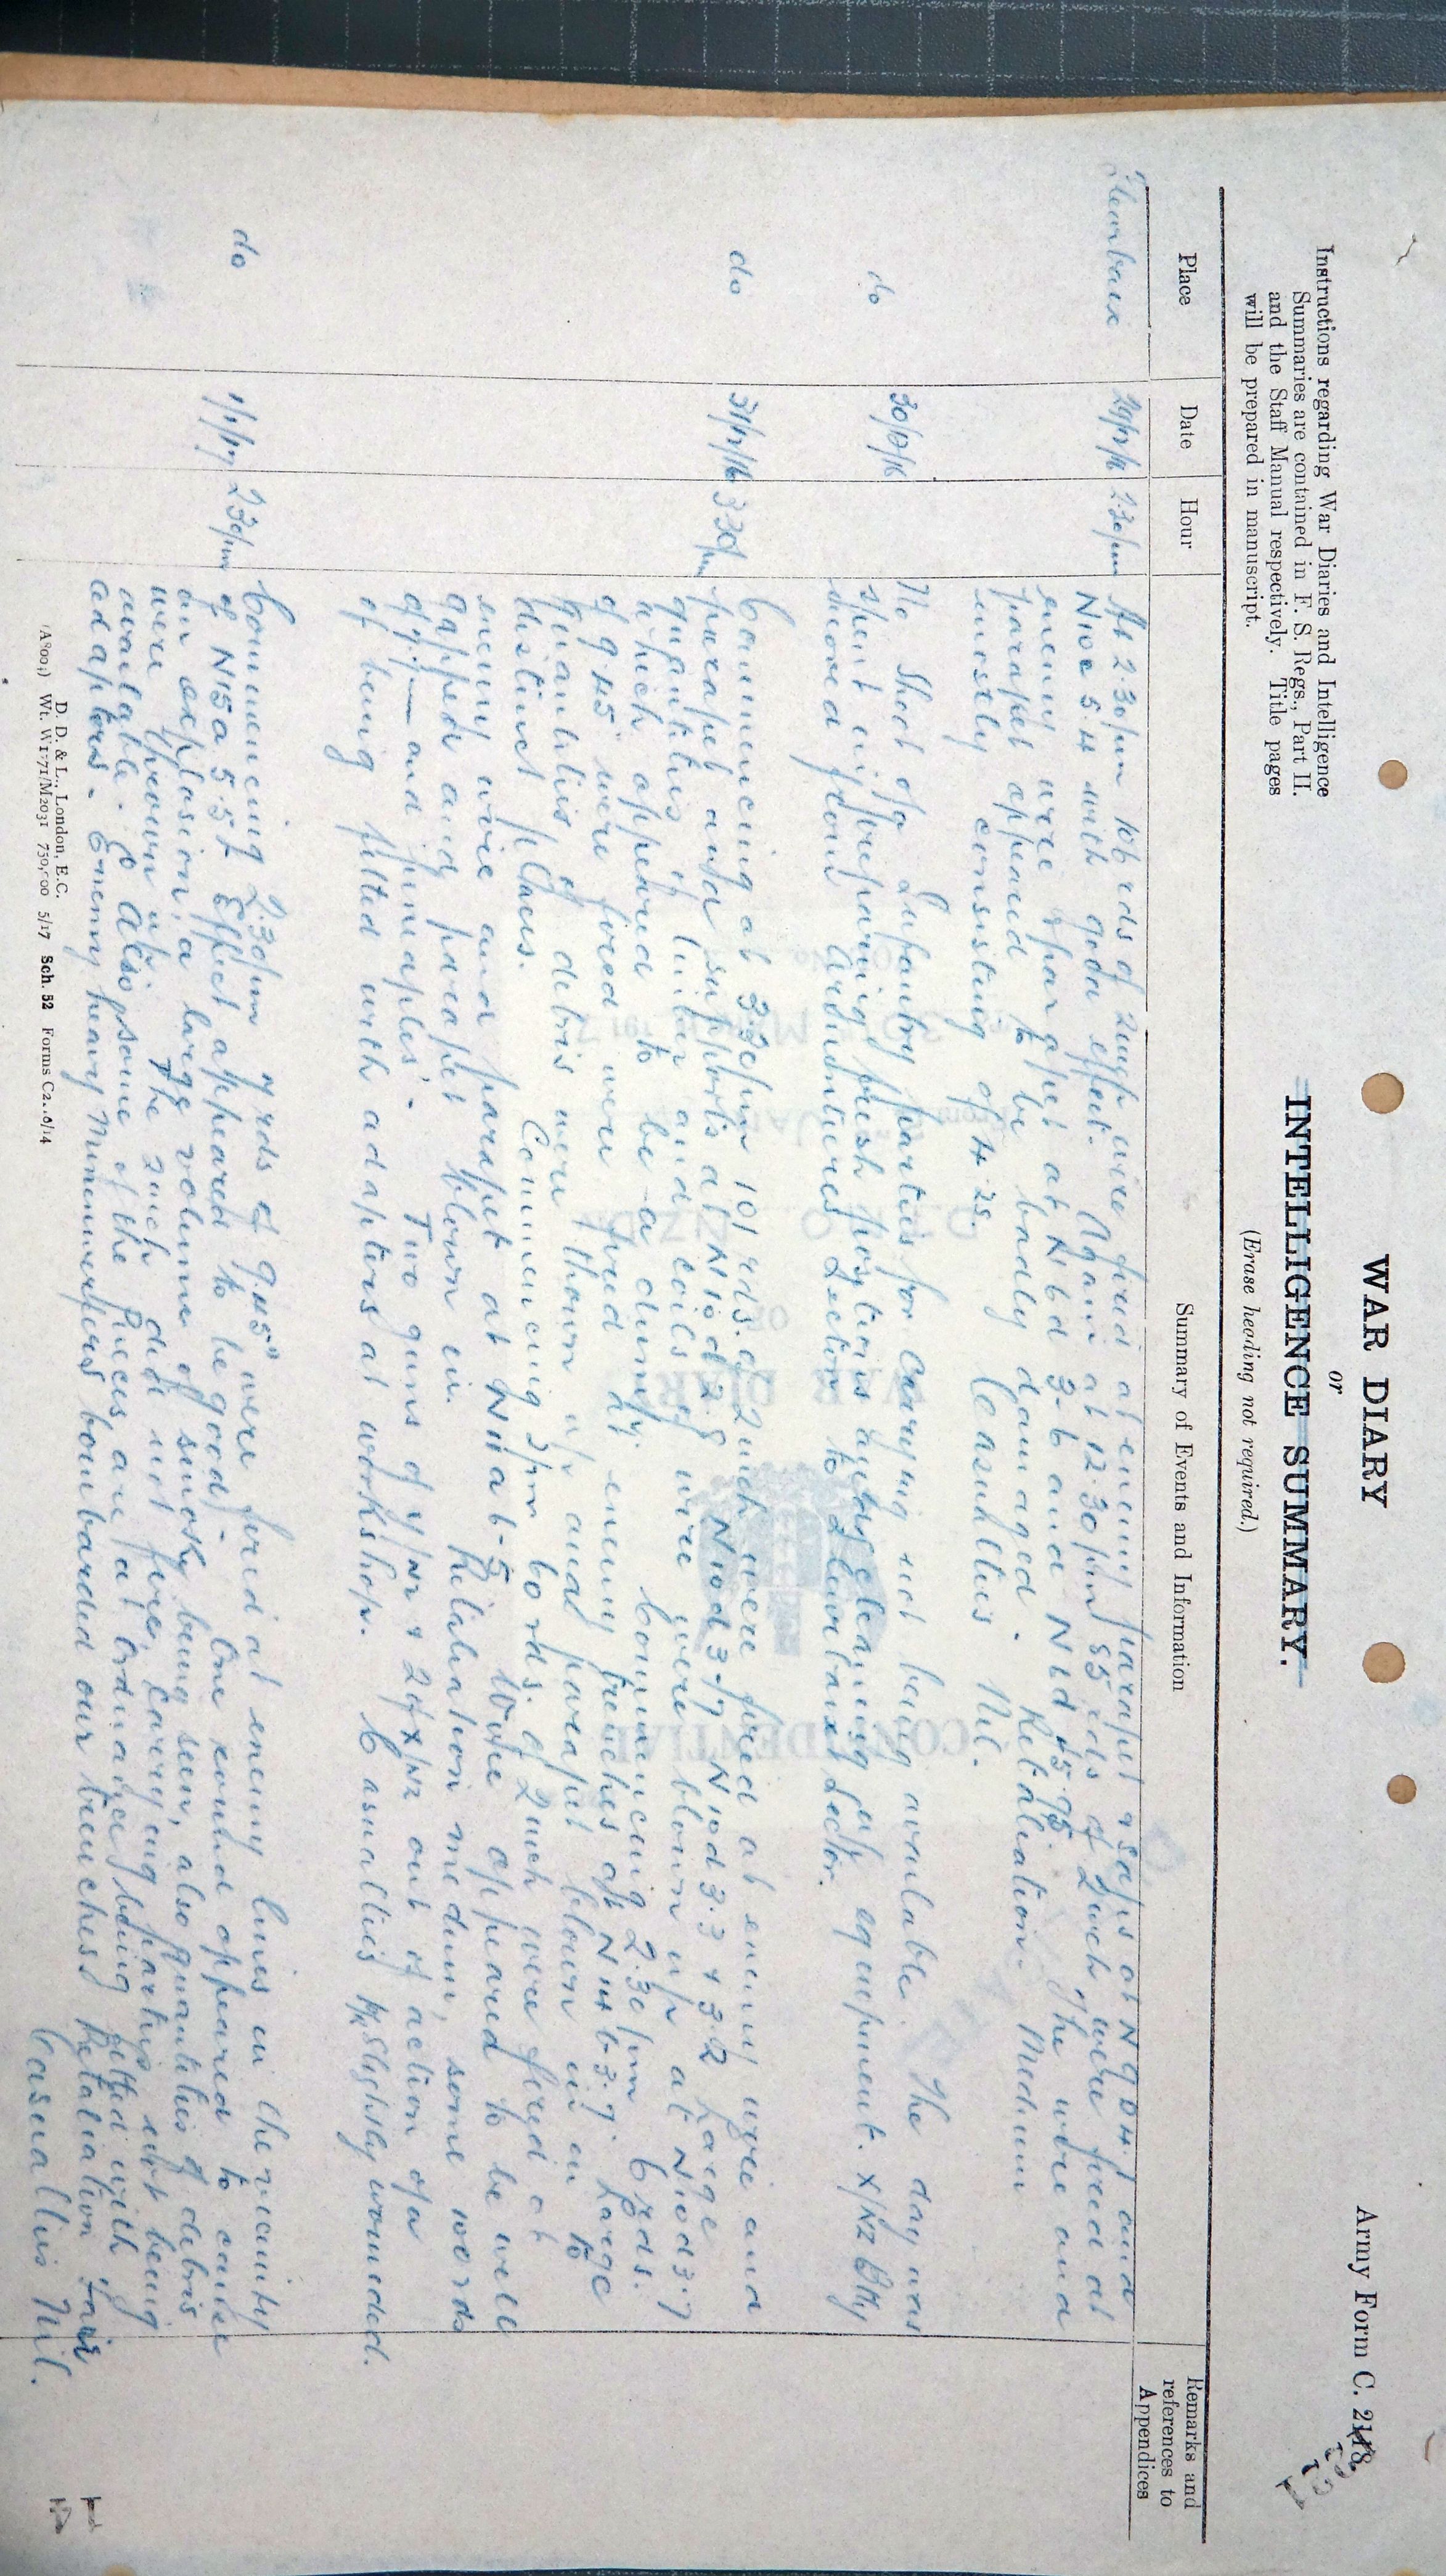 Army Form C. 2118.
WAR DIARY
or
INTELLIGENCE SUMMARY.
(Erase heading not required.)
Instructions regarding War Diaries and Intelligence
Summaries are contained in F. S. Regs., Part II.
and the Staff Manual respectively. Title pages
will be prepared in manuscript.
Place
Date
Hour
Summary of Events and Information
Remarks and
references to
Appendices
Fleurbaix 29/12/16 2.30pm At 2.30pm 106 rds of 2inch were fired at enemy parapet & saps at N 9 D 4.1 and
N10c 5.4 with good effect. Again at 12.30pm 55 rds of 2inch were fired at
enemy wire & parapet at N 6 d 3-6 and N 6 d 45.75. The wire and
parapet appeared to be badly damaged. Retaliation Medium
mostly consisting of 4.2s. Casualties Nil.
do 30/12/16 No Shoot o/a Infantry parties for carrying not being available. The day was
spent in preparing fresh positions and cleaning up equipment. X/NZ Bty
moved from Armentieres Section to Fleurbaix Sector.
do 31/12/16 3.30pm Commencing at 3.30pm 101 rds. of 2 inch were fired at enemy wire and
parapet and supports at N10d 2.8 N10d 3-7 N10d 3.3 & 3.2 Large
quantities of timber and coils of wire were blown up at N10d 3.7
which appeared to be a dump. Commencing 2.30pm 6 rds.
of 9.45 were fired at enemy trenches at N14 b-3.7. Large
quantities of debris were thrown up and parapet blown in in 10
distinct places. Commencing 3pm 60 rds. of 2inch were fired at
enemy wire and parapet at N11 a 6-5 Wire appeared to be well
gapped and parapet blown in. Retaliation medium, some words
of 77 and pineaples'. Two guns of Y/NZ & 2 of X/NZ out of action o/a
of being fitted with adapters at workshop. Casualties 1 slightly wounded.
do 1/1/17 2.30pm Commencing 2.30pm 7 rds of 9.45" were fired at enemy lines in the vicinity
of N15a 5.5½ Effect appeared to be good. One round appeared to cause
an explosion, a large volume of smoke being seen, also quantities of debris
were thrown up. The 2inch did not fire, carrying parties not being
available. & also some of the Pieces are at Ordnance being fitted with
adaptors. Enemy heavy Minenwerfers bombarded our trenches. Retaliation fair
Casualties Nil.
D. D. & L., London, E.C.
Wt. W1771/M2031 750,000 5/17 Sch. 52 Forms